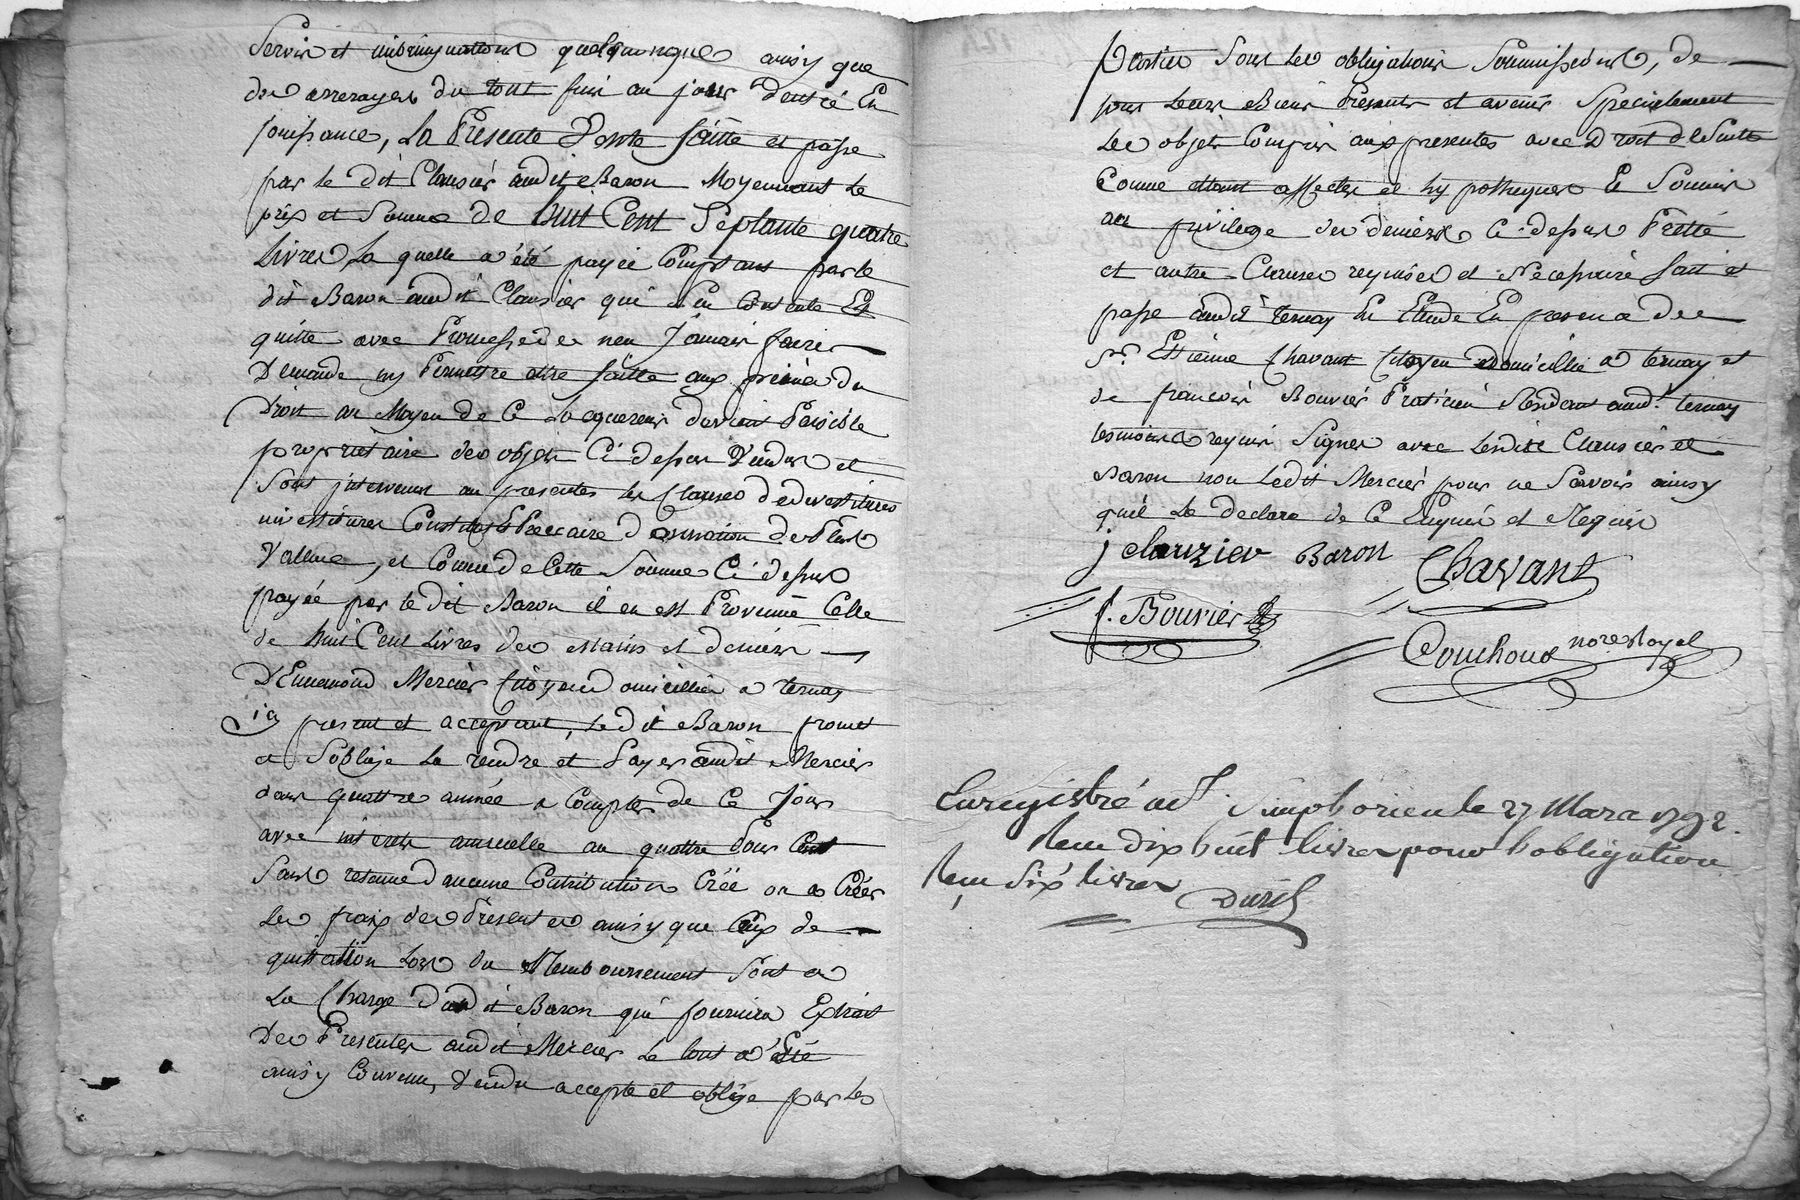 Servis et imbringuations quelquonques ainsy que
des arrerages du tout fuir au jour d'entré En
jouissance, La Presente Vente faitte et passe
par le dit Clausier audit Baron Moyennant le
prix et Somme de huit Cent Septante quatre
Livres, La quelle a été payée Comptant par le
dit Baron audit Clausier qui En Contente Et
quitte avec Promesse de nen Jamais faire
Demande ny Permettre etre faitte aux peines du
Droit au Moyen de Ce Lacquereur devient Paisible
proprietaire des objets Ci dessus Vendus et
Sont intervenu au presentes les Clauses de devestitures
investitures Constitut Precaire donnation de Plus
Vallue, et Comme de Cette Somme Ci dessus
payée par le dit Baron il en est Provenue Celle
de huit Cent Livres des mains et deniers
D'Ennemond Mercier Citoyen domicillier a ternay
icy present et acceptant, Ledit Baron promet
et Soblige La rendre et Payer audit Mercier
dans quattre année a Compter de Ce Jour
avec interets annuelle au quattre pour Cent
Sans retenue d'aucune Contribution Créé ou a Créer
Les frais des Presentes ainsy que Ceux de
quittation Lors du Rembournement Sont a
La Charge dudit Baron qui fournira Extrait
Des Presentes audit Mercier Le tout a Eté
ainsy Convenu, Vendu accepté et obligé par les
Parties Sous les obligations Soumissions, de
tous Leurs Biens Presents et avenir Specialement
Les objets Compris aux presentes avec Droit de Suitte
Comme etant affectes et hypotheques Et Soumis
au privilege des deniers Ci-dessus Pretté
et autre Clauses requises et Necessaire fait et
passe audit ternay En Etude En presence de
Sr. Etienne Chavant Citoyen domicillié a ternay et
de francois Bouvier Praticien Residant aud. ternay
temoins requis Signes avec Lesdits Clausier et
Baron non Ledit Mercier pour ne Savoir ainsy
quil La declare de Ce Enquis et Requis
j clauzier Baron Chavant
f. Bouvier
Couchoud nore Royal
Enregistré a St. Simphorien le 27 Mars 1792.
Recu dix huit livres pour l'obligation
Recu Six livres